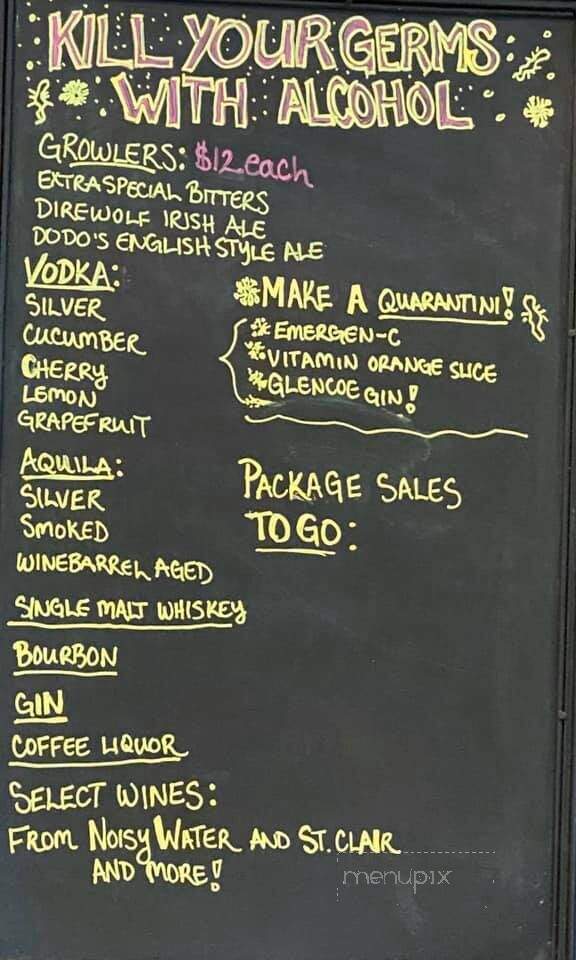 KILL YOUR GERMS
WITH ALCOHOL
GROWLERS: $12 each
EXTRA SPECIAL BITTERS
DIREWOLF IRISH ALE
DODO'S ENGLISH STYLE ALE
VODKA:
SILVER
CUCUMBER
CHERRY
LEMON
GRAPEFRUIT
MAKE A QUARANTINI!
EMERGEN-C
VITAMIN ORANGE SLICE
GLENCOE GIN!
AQUILA:
SILVER
SMOKED
WINEBARREL AGED
PACKAGE SALES
TO GO:
SINGLE MALT WHISKEY
BOURBON
GIN
COFFEE LIQUOR
SELECT WINES:
FROM NOISY WATER AND ST. CLAIR
AND MORE!
menupix